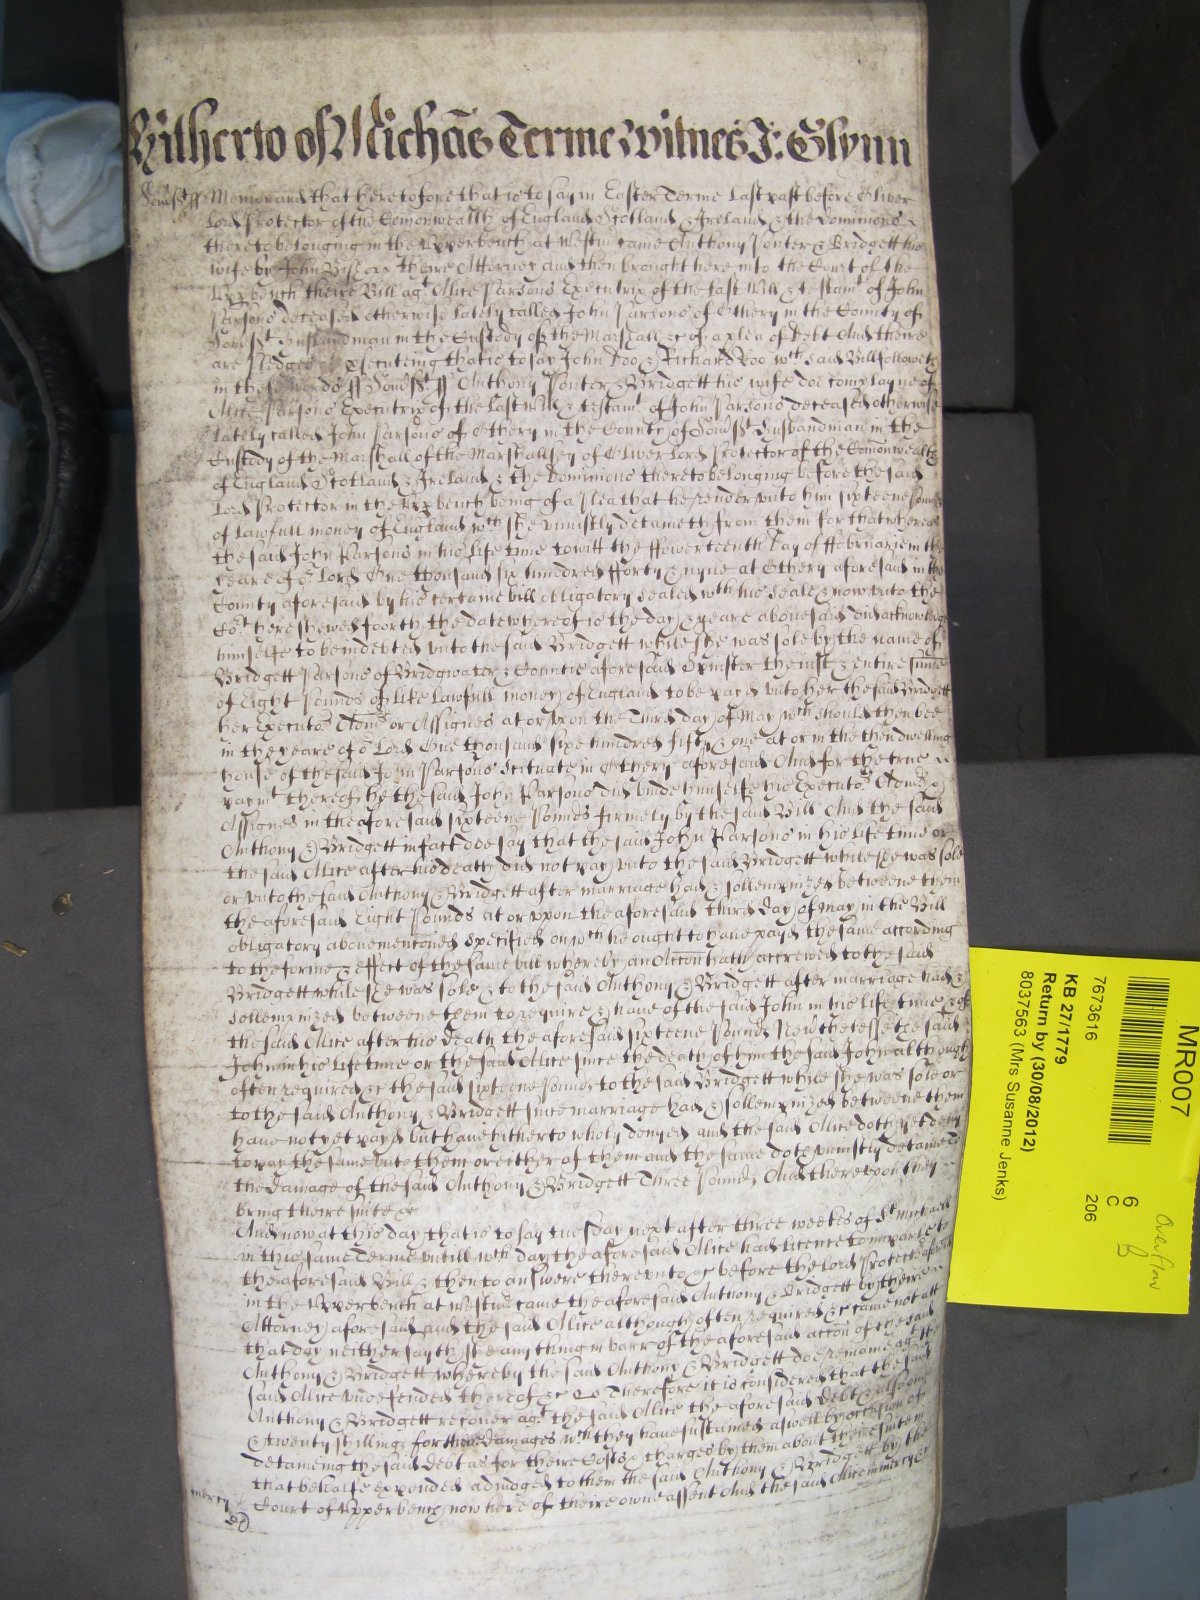 Hitherto of Michãs Terme witnes J: Glynn
Somst ss Memorand that heretofore that is to say in Easter Terme last past before Oliver
Lord Protector of the Comonwealth of England Scotland & Ireland & the Dominions
thereto belonging in the Upperbench at Westm came Anthony & Bridgett his
wife by John theire Attorney and then brought here into the Court of the
Uppbench theire Bill agt Alice Parsons Executrix of the last Will & testamt of John
Parsons deceased otherwise lately called John Parsons of Othery in the County of
Somst husbandman in the Custody of the Marshall &c of a plea of Debt And there
are Pledges of prsecuteing that is to say John Doo & Richard Roo wch said Bill followeth
in these words ss Somst ss Anthony & Bridgett his wife doe complayne of
Alice Parsons Executrix of the last Will & testamt of John Parsons deceased otherwise
lately called John Parsons of Othery in the County of Somst husbandman in the
Custody of the Marshall of the Marshallsey of Oliver Lord Protector of the Comonwealth
of England Scotland & Ireland & the Dominions thereto belonging before the said
Lord Protector in the Uppbench being of a Plea that he render unto him sixteene Pounds
of lawfull money of England wch she uniustly detaineth from them for that whereas
the said John Parsons in his life time towitt the ffowerteenth day of ffebruarie in the
yeare of or Lord One thousand six hundred fforty & nyne at Othery aforesaid in the
County aforesaid by his certaine bill obligatory sealed wth his seale & now unto the
Cort here shewed foorth the date whereof is the day & yeare abovesaid did acknowledge
himselfe to be indebted unto the said Bridgett while she was sole by the name of
Bridgett Parsons of Bridgwater & Countie aforesaid Spinster the iust & entire summe
of Eight Pounds of like lawfull money of England to be payd unto her the said Bridgett
her Executors Admrs or Assignes at or upon the Third day of May wch should then bee
in the yeare of or Lord One thousand sixe hundred fifty & one at or in the then dwelling
house of the said John Parsons scituate in Othery aforesaid And for the true
paymt thereof he the said John Parsons did binde himselfe his Executors Admrs &
Assignes in the aforesaid sixteene Pounds firmely by the said Bill And the said
Anthony & Bridgett in fact doe say that the said John Parsons in his life time or
the said Alice after his death did not pay unto the said Bridgett while she was sole
or unto the said Anthony & Bridgett after marriage had & sollempnized betweene them
the aforesaid Eight Pounds at or uppon the aforesaid third day of May in the Bill
obligatory abovementioned specified on wch he ought to have payd the same according
to the forme & effect of the same bill whereby an Accon hath accrewed to the said
Bridgett while she was sole & to the said Anthony & Bridgett after marriage had &
sollempnized betweene them to require & have of the said John in his life time & of
the said Alice after his death the aforesaid sixteene Pounds Neverthelesse the said
John in his life time or the said Alice since the death of him the said John although
often required &c the said sixteene Pounds to the said Bridgett while she was sole or
to the said Anthony & Bridgett since marriage had & sollempnized betweene them
have not yet payd but have hitherto wholy denyed and the said Alice doth yet deny
to pay the same unto them or either of them and the same doth uniustly detaine To
the damage of the said Anthony & Bridgett Three Pounds And thereupon they
bring theire suite &c
And now at this day that is to say tuesday next after three weekes of St Michaell
in this same Terme untill wch day the aforesaid Alice had licence to imparle to
the aforesaid Bill & then to answere thereunto &c before the Lord Protector aforesaid
in the Upperbench at Westmr came the aforesaid Anthony & Bridgett by theire
Attorney aforesaid and the said Alice although often required &c came not att
that day neither sayth she any thing in barr of the aforesaid accon of the said
Anthony & Bridgett whereby the said Anthony & Bridgett doe remaine agt the
said Alice undefended thereof &c Therefore it is considered that the said
Anthony & Bridgett recover agt the said Alice the aforesaid Debt & alsoe
& twenty shillings for their Damages wch they have susteined aswell by occasion of
detaineing the said debt as for theire Costs & charges by them about theire suite in
that behalfe expended adiudged to them the said Anthony & Bridgett by the
mercy Court of Upperbench now here of theire owne assent And the said Alice in mercy &c
MR007
7673616
KB 27/1779
Return by (30/08/2012)
8037563 (Mrs Susanne Jenks)
6
C
206
Overflow
B